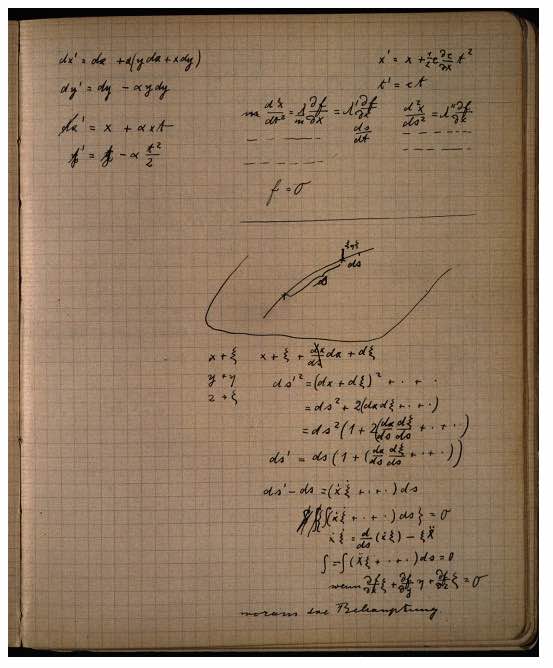 dx' = dx + α(y dx + x dy)
dy' = dy − α y dy
x' = x + α x t
− α t²/2
x' = x + 1/2 c ∂c/∂x t²
t' = ct
m d²x/dt² = λ/m ∂f/∂x = λ' ∂f/∂x d²x/ds² = λ'' ∂f/∂x
ds/dt
f = 0
ξηζ
ds'
x + ξ x + ξ + dx/ds dx + dξ
y + η ds'² = (dx + dξ)² + · + ·
z + ζ = ds² + 2(dx dξ + · + ·)
= ds² (1 + 2(dx/ds dξ/ds + · + ·)
ds' = ds (1 + (dx/ds dξ/ds + · + ·))
ds' − ds = (ẋ ξ̇ + · + ·) ds
∫(ẋ ξ̇ + · + ·) ds } = 0
ẋ ξ̇ = d/ds (ẋ ξ) − ξ ẍ
∫ = ∫(ẍ ξ + · + ·) ds = 0
wenn ∂f/∂x ξ + ∂f/∂y η + ∂f/∂z ζ = 0
woraus die Behauptung.